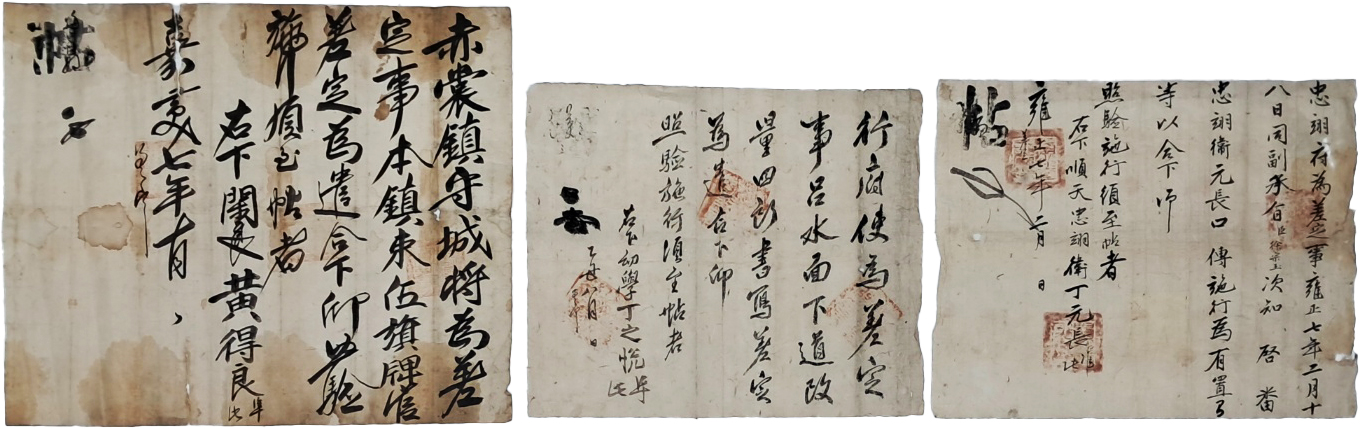 赤裳鎮守城將爲差
定事本鎮束伍旗牌官
差定爲遣合下仰照驗
施行須至帖者
右下閑良黃得良
嘉慶七年 月
帖
行府使爲差定
事呂水面下道改
量田 書寫差定
爲遣合下仰
照驗施行須至帖者
右下幼學丁之悅 准此
八月 日
忠翊府爲差定事雍正七年二月十
八日同副承旨臣徐宗玉次知 啓 番
忠翊衛元長口傳施行爲有置有
等以合下仰
照驗施行須至帖者
右下順天忠翊衛丁元長 准此
雍正七年二月 日
帖